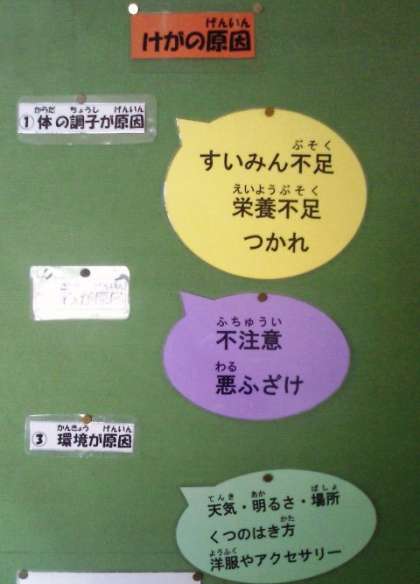 けがの原因
①体の調子が原因
すいみん不足
栄養不足
つかれ
が原因
不注意
悪ふざけ
③ 環境が原因
天気・明るさ・場所
くつのはき方
洋服やアクセサリー